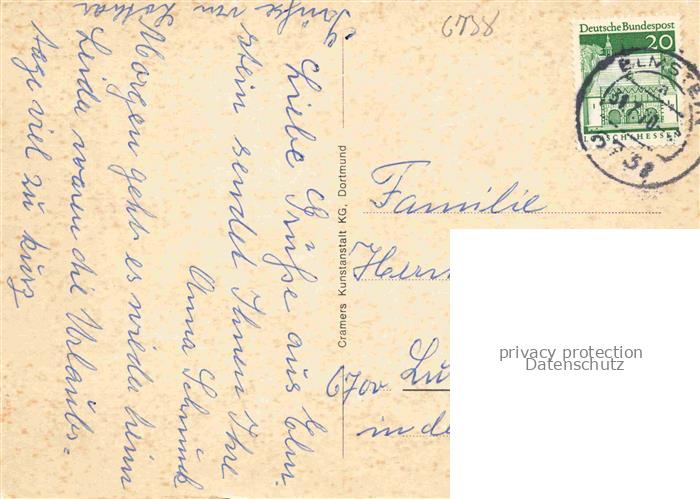 Liebe Grüße aus Elm-
stein sendet Ihnen Ihre
Anna Schmidt
Morgen geht es wieder heim
Leider waren die Urlaubs-
tage viel zu kurz
Grüße von Lothar
6738
Deutsche Bundespost
20
LORSCH/HESSEN
ELMSTEIN
6738
Cramers Kunstanstalt KG, Dortmund
Familie
Her
6700 Lu
in de
privacy protection
Datenschutz